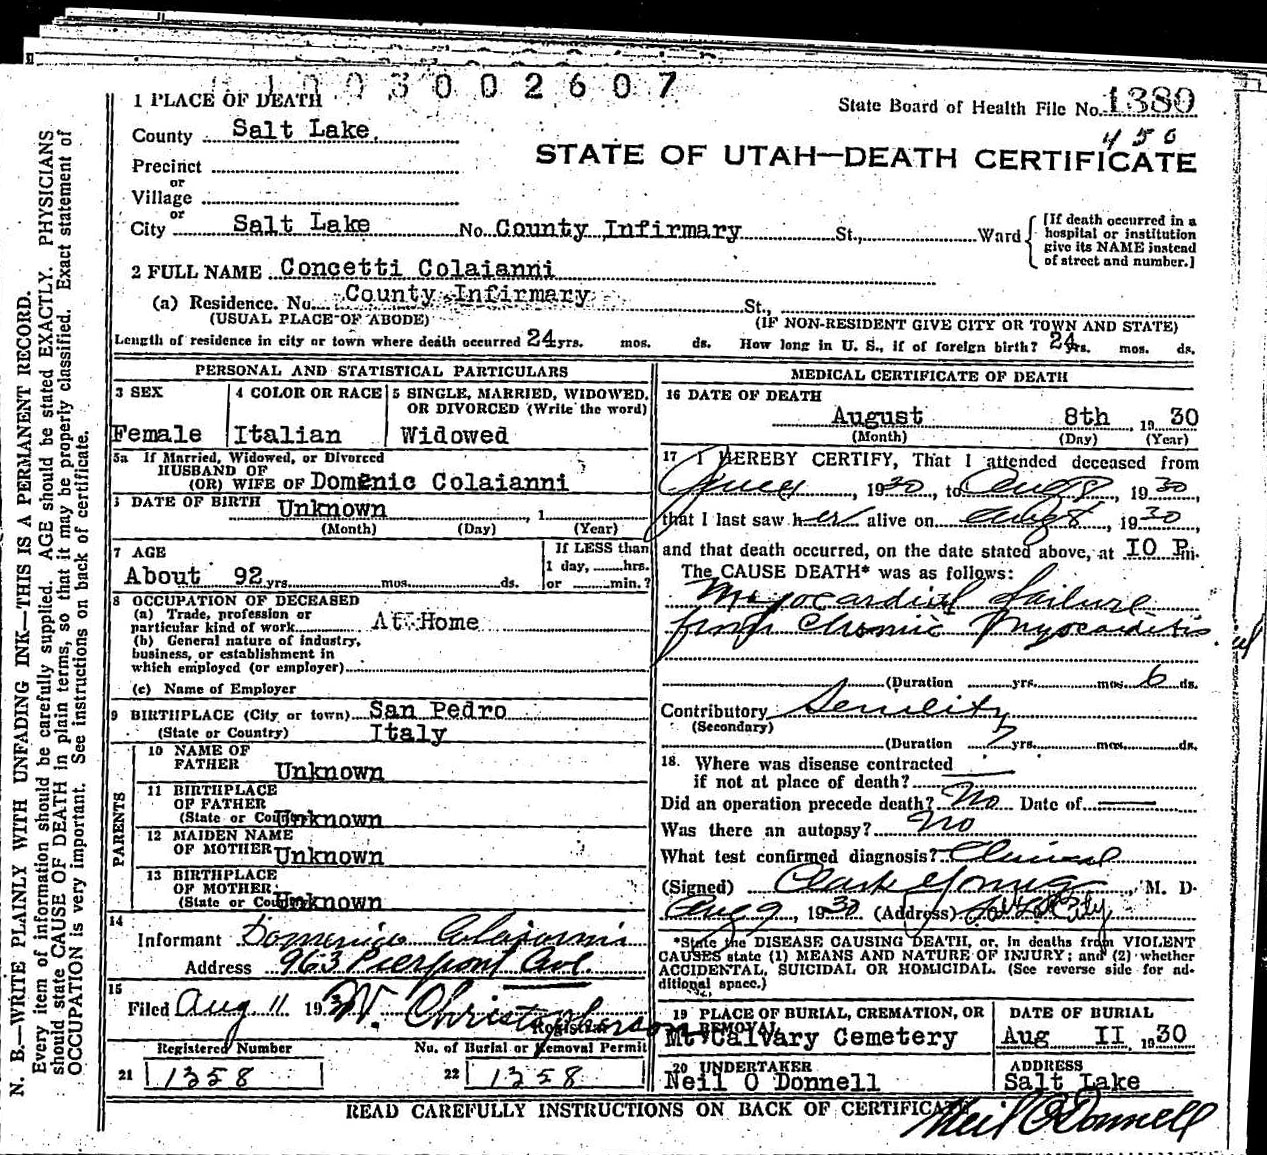 1003002607
1 PLACE OF DEATH
State Board of Health File No. 1380
County Salt Lake
450
STATE OF UTAH—DEATH CERTIFICATE
Precinct
or
Village
or
City Salt Lake No. County Infirmary St., Ward
[If death occurred in a hospital or institution give its NAME instead of street and number.]
2 FULL NAME Concetti Colaianni
(a) Residence. No. County Infirmary St.,
(USUAL PLACE OF ABODE) (IF NON-RESIDENT GIVE CITY OR TOWN AND STATE)
Length of residence in city or town where death occurred 24 yrs. mos. ds. How long in U. S., if of foreign birth? 24 yrs. mos. ds.
PERSONAL AND STATISTICAL PARTICULARS
3 SEX
Female
4 COLOR OR RACE
Italian
5 SINGLE, MARRIED, WIDOWED,
OR DIVORCED (Write the word)
Widowed
5a If Married, Widowed, or Divorced
HUSBAND OF
(OR) WIFE OF Domenic Colaianni
DATE OF BIRTH Unknown , 1
(Month) (Day) (Year)
7 AGE
About 92 yrs. mos. ds.
If LESS than
1 day, hrs.
or min.?
8 OCCUPATION OF DECEASED
(a) Trade, profession or
particular kind of work At Home
(b) General nature of industry,
business, or establishment in
which employed (or employer)
(c) Name of Employer
9 BIRTHPLACE (City or town) San Pedro
(State or Country) Italy
PARENTS
10 NAME OF
FATHER Unknown
11 BIRTHPLACE
OF FATHER
(State or Country) Unknown
12 MAIDEN NAME
OF MOTHER Unknown
13 BIRTHPLACE
OF MOTHER
(State or Country) Unknown
14
Informant Domenico Colaianni
Address 963 Pierpont Ave.
15
Filed Aug 11 1930 W. Christopherson
Registrar
Registered Number No. of Burial or Removal Permit
21 1358 22 1358
MEDICAL CERTIFICATE OF DEATH
16 DATE OF DEATH
August 8th , 1930
(Month) (Day) (Year)
17 I HEREBY CERTIFY, That I attended deceased from
, 1930, to Aug 8, 1930,
that I last saw her alive on Aug 8, 1930,
and that death occurred, on the date stated above, at 10 P.m.
The CAUSE DEATH* was as follows:
Myocardial failure
from Chronic Myocarditis
(Duration yrs. mos. 6 ds.
Contributory Senility
(Secondary)
(Duration yrs. mos. ds.
18. Where was disease contracted
if not at place of death?
Did an operation precede death? No Date of —
Was there an autopsy? No
What test confirmed diagnosis? Clinical
(Signed) Clark Young, M. D.
Aug 9, 1930 (Address) City
*State the DISEASE CAUSING DEATH, or, in deaths from VIOLENT
CAUSES state (1) MEANS AND NATURE OF INJURY; and (2) whether
ACCIDENTAL, SUICIDAL OR HOMICIDAL. (See reverse side for ad-
ditional space.)
19 PLACE OF BURIAL, CREMATION, OR
REMOVAL
Mt Calvary Cemetery
DATE OF BURIAL
Aug 11, 1930
20 UNDERTAKER
Neil O Donnell
ADDRESS
Salt Lake
READ CAREFULLY INSTRUCTIONS ON BACK OF CERTIFICATE
Neil O'Donnell
N. B.—WRITE PLAINLY WITH UNFADING INK—THIS IS A PERMANENT RECORD.
Every item of information should be carefully supplied. AGE should be stated EXACTLY. PHYSICIANS
should state CAUSE OF DEATH in plain terms, so that it may be properly classified. Exact statement of
OCCUPATION is very important. See instructions on back of certificate.